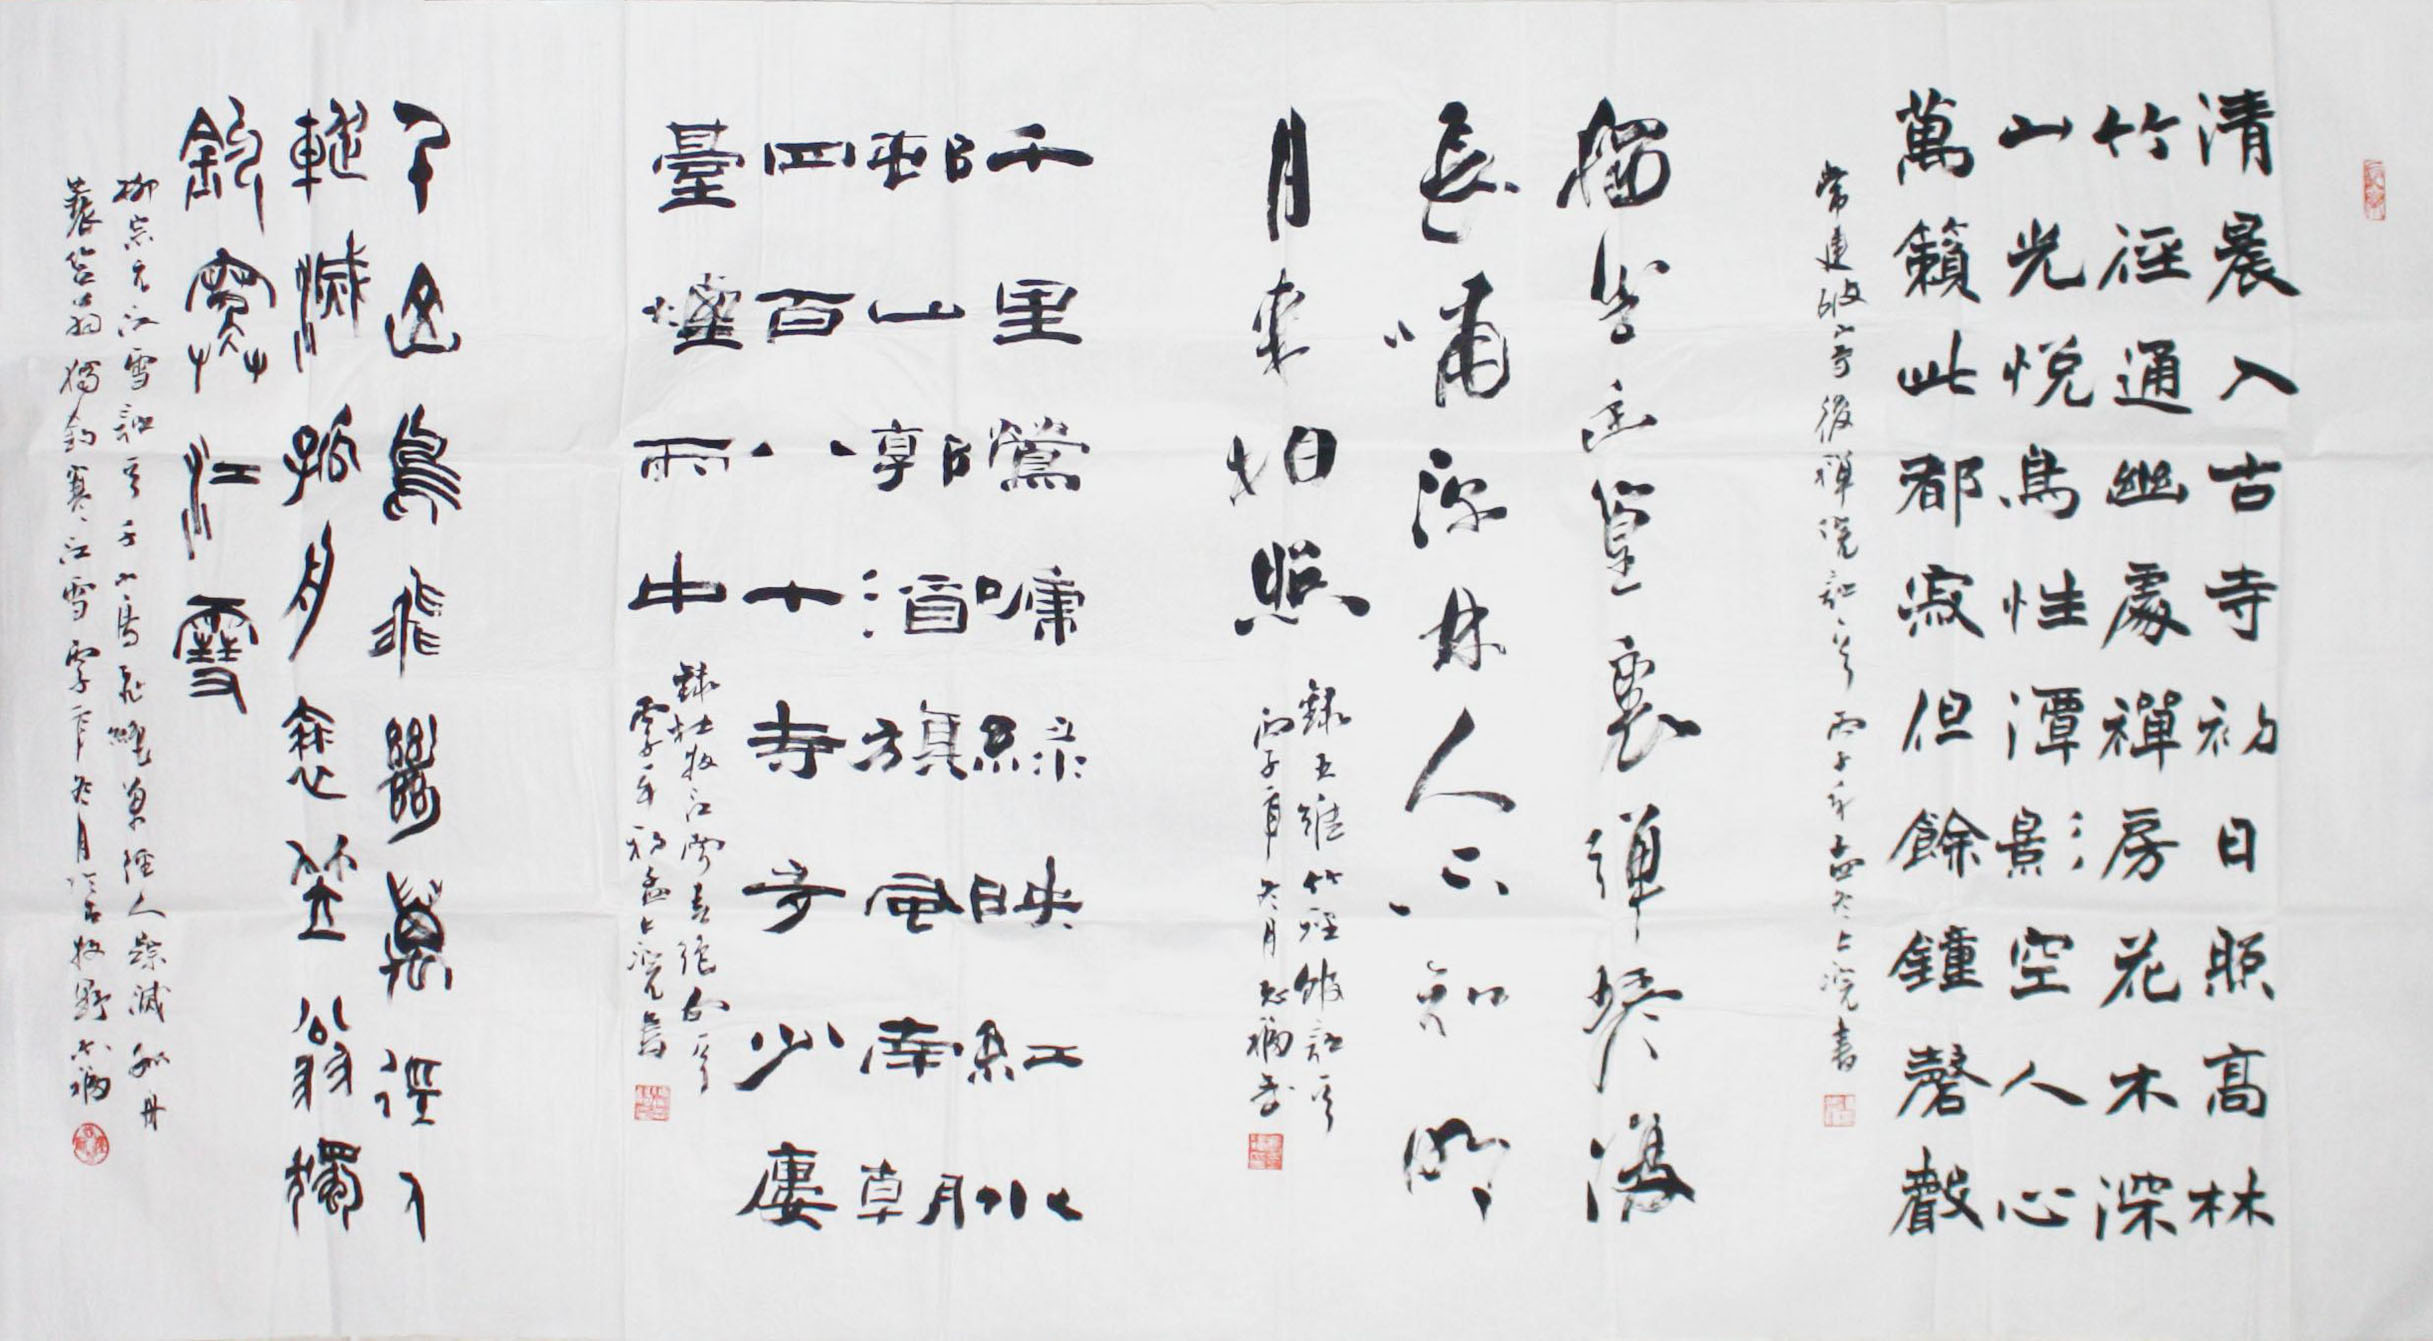 清晨入古寺初日照高林
竹徑通幽處禪房花木深
山光悅鳥性潭影空人心
萬籟此都寂但餘鐘磬聲
常建破山寺後禪院詩一首 丙子年孟冬上浣書
獨坐幽篁裏彈琴復
長嘯深林人不知明
月來相照
錄王維竹徑館詩一首
丙子年冬月
千里鶯啼綠映紅水
村山郭酒旗風南朝
四百八十寺多少樓
臺煙雨中
錄杜牧江南春絕句一首
丙子年初孟冬上浣書
千山鳥飛絕萬徑人
蹤滅孤舟蓑笠翁獨
釣寒江雪
柳宗元江雪詩一首 千山鳥飛絕萬徑人踪滅孤舟
蓑笠翁獨釣寒江雪